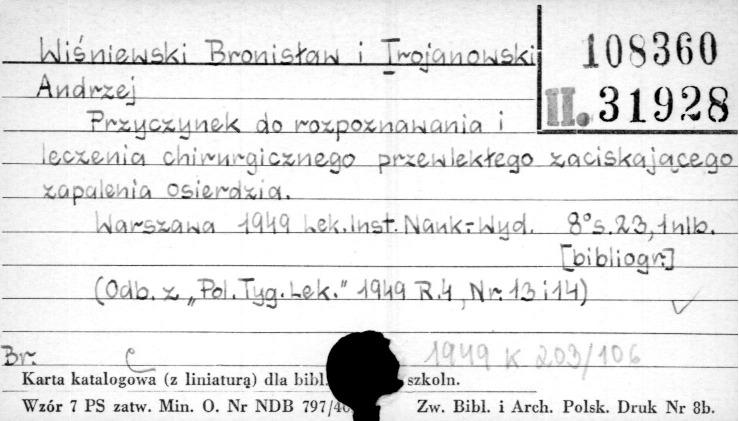 Wiśniewski Bronisław i Trojanowski
108360
Andrzej
II. 31928
Przyczynek do rozpoznawania i
leczenia chirurgicznego przewlekłego zaciskającego
zapalenia osierdzia.
Warszawa 1949 Lek. Inst. Nauk.-Wyd. 8° s. 23, 1 nlb.
[bibliogr.]
(Odb. z „Pol. Tyg. Lek." 1949 R. 4, Nr. 13 i 14)
Br. C 1949 K 203/106
Karta katalogowa (z liniaturą) dla bibl. szkoln.
Wzór 7 PS zatw. Min. O. Nr NDB 797/ Zw. Bibl. i Arch. Polsk. Druk Nr 8b.